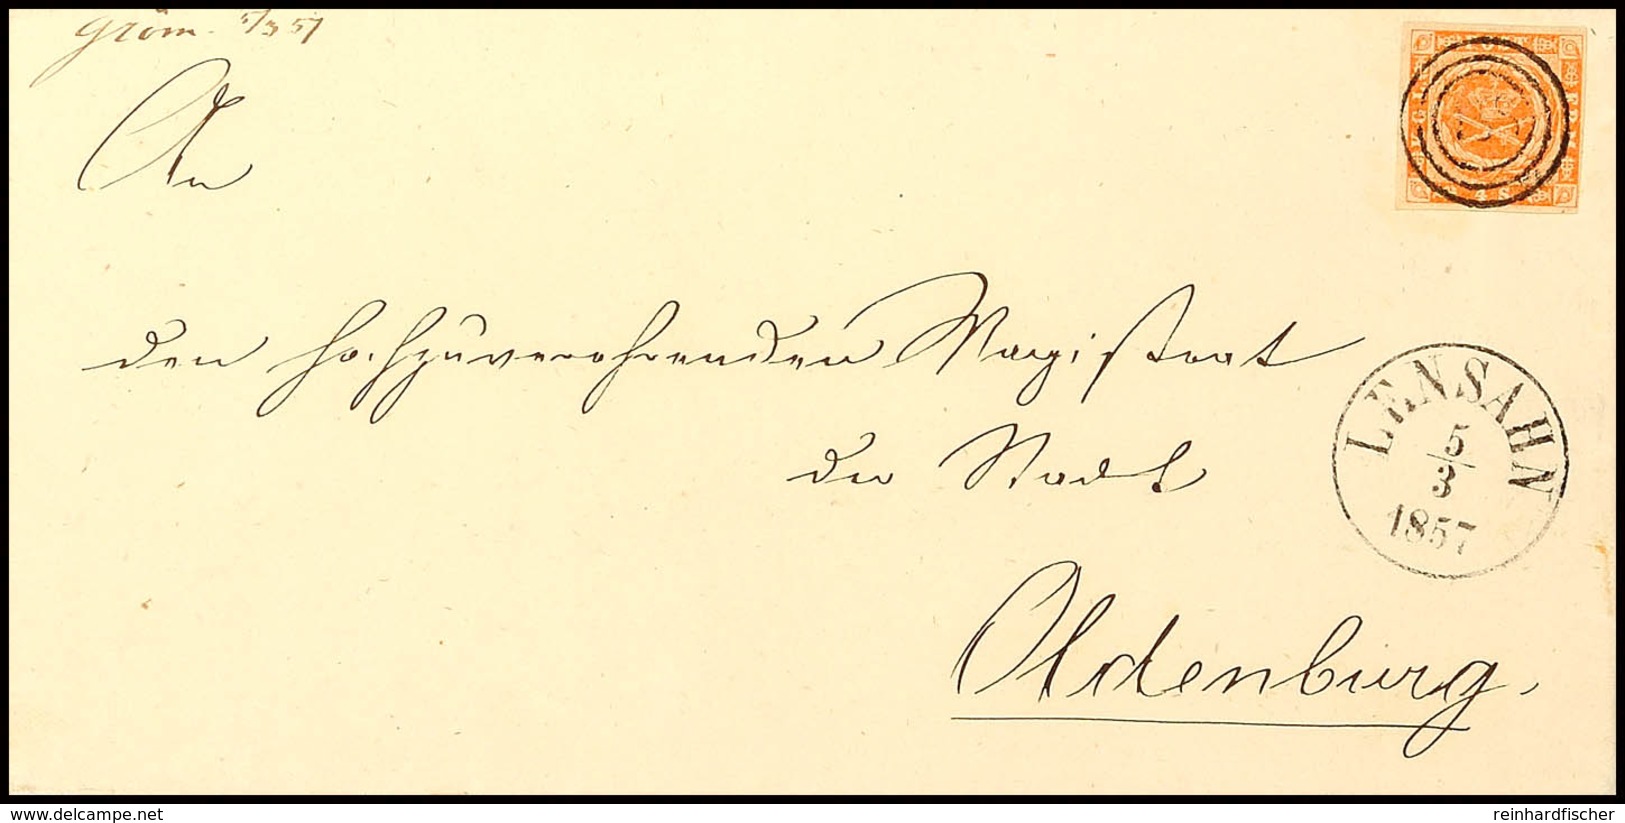 Gröm. 5/3 57
An
den hochzuverehrenden Magistrat
der Stadt
Oldenburg.
LENSAHN
5
3
1857
4 S
delcampe.net
reinhardfischer